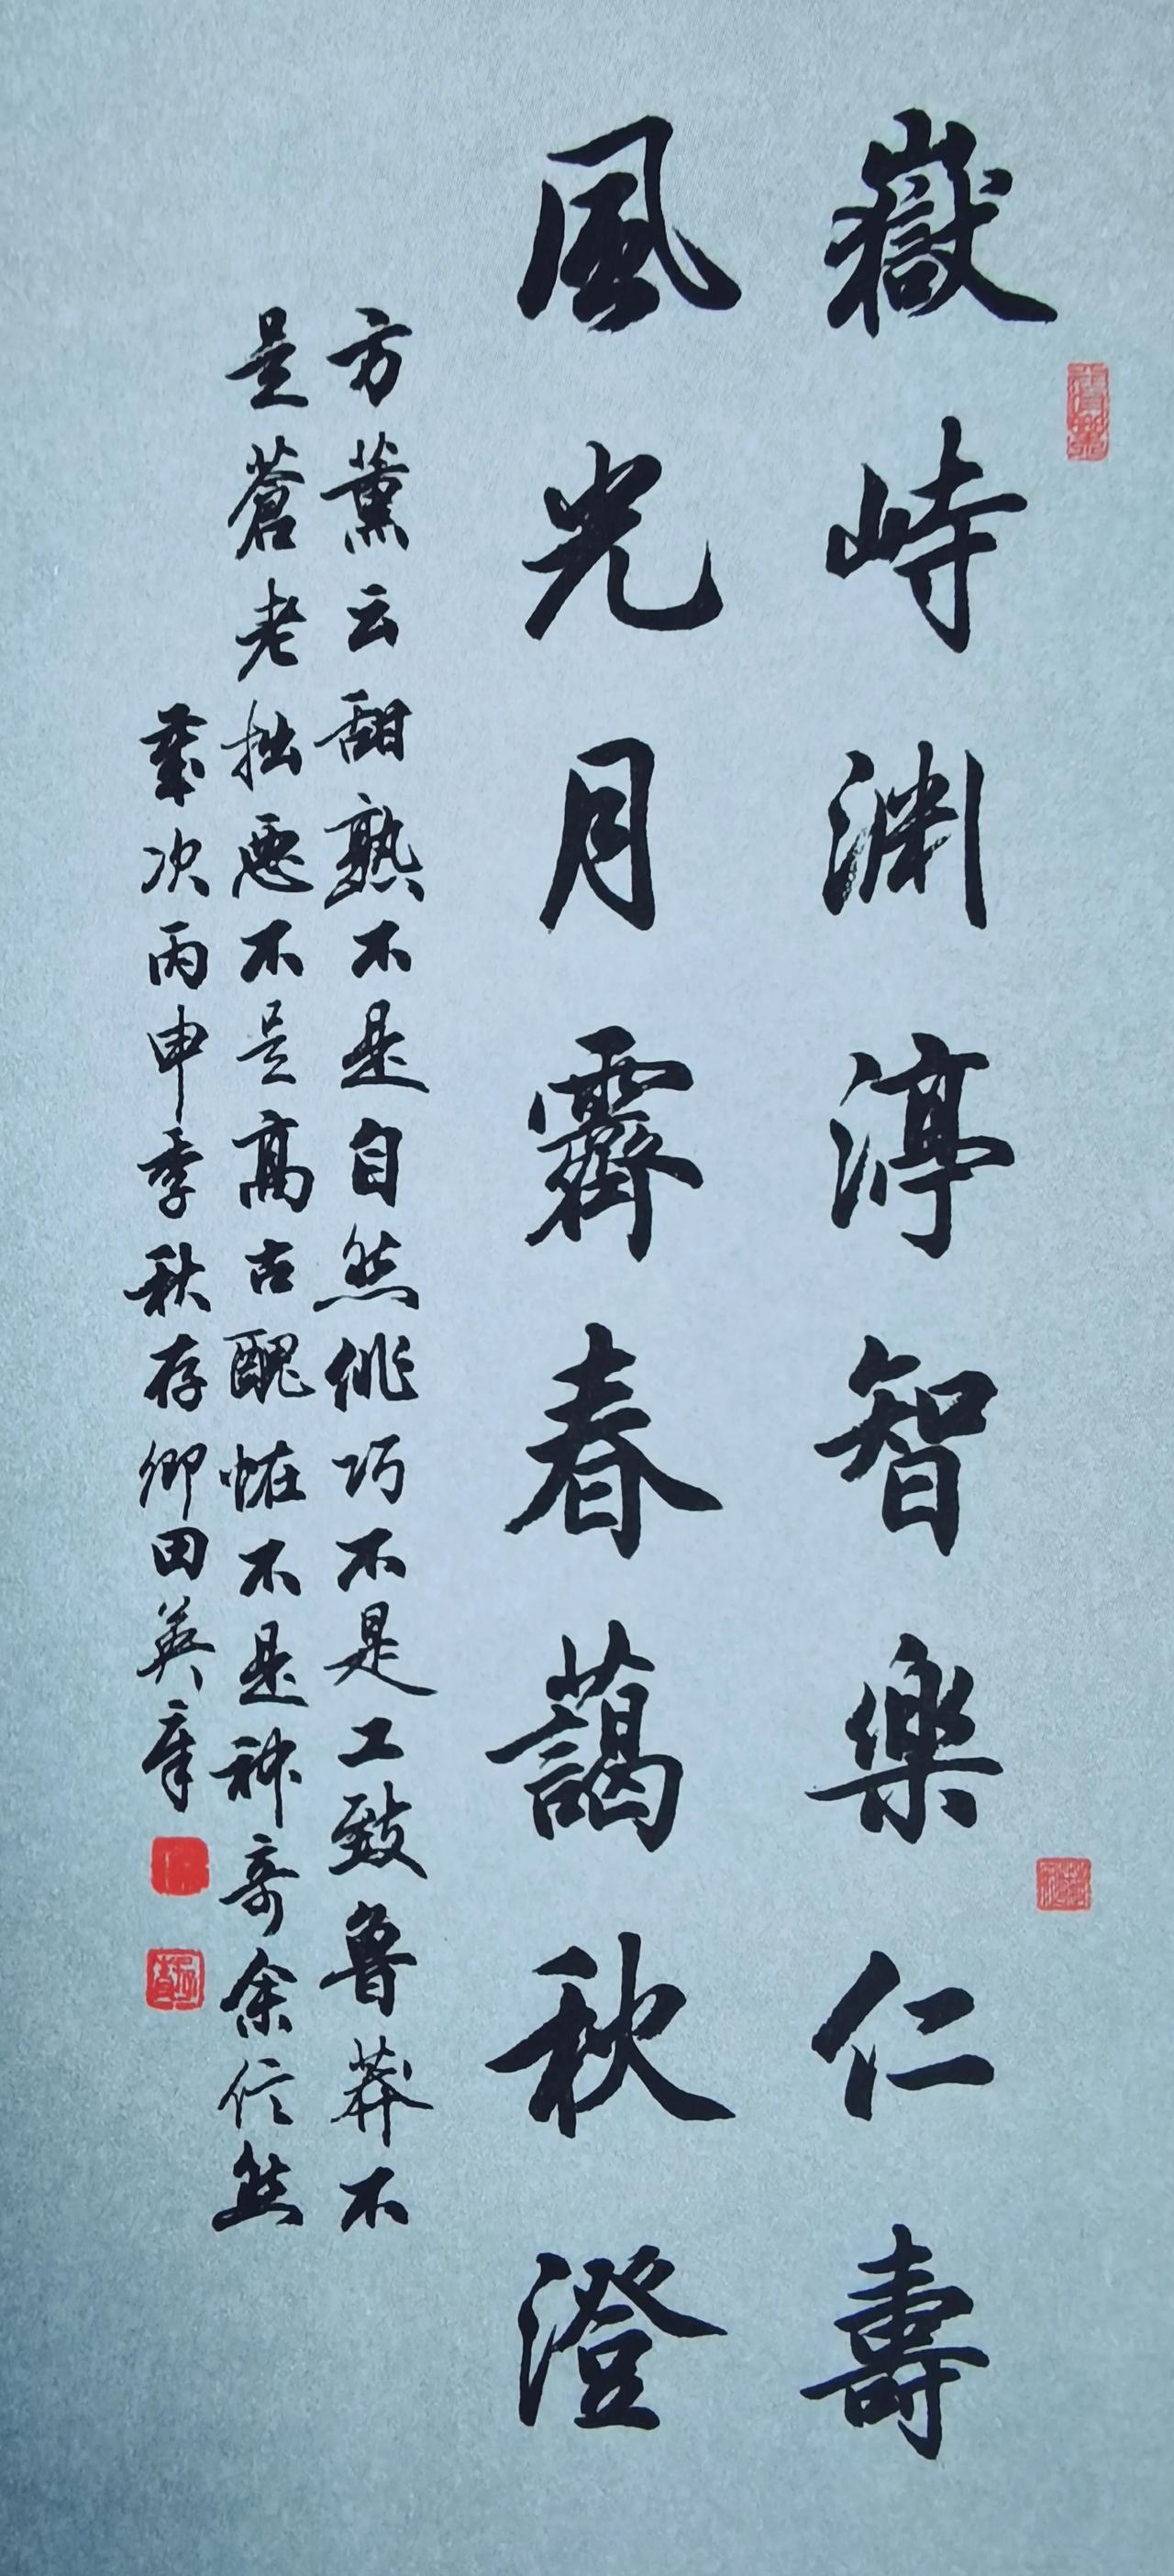 嶽峙淵渟智樂仁壽
風光月霽春藹秋澄
方薰云甜熟不是自然佻巧不是工致魯莽不
是蒼老拙惡不是高古醜怪不是神奇余信然
歲次丙申季秋存卿田英章